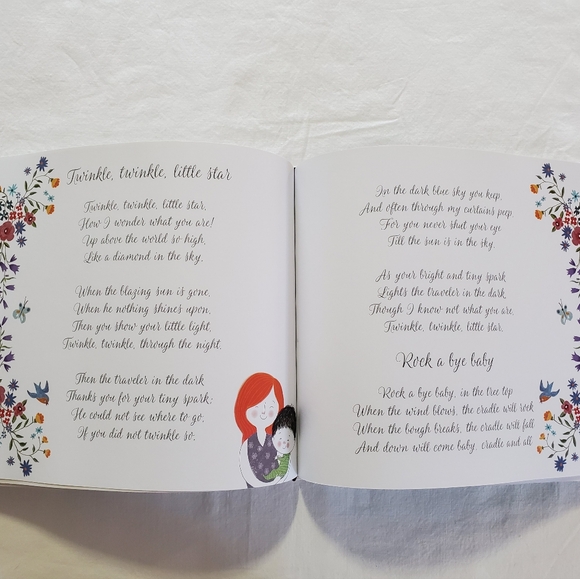 Twinkle, twinkle, little star
Twinkle, twinkle, little star,
How I wonder what you are!
Up above the world so high,
Like a diamond in the sky.
When the blazing sun is gone,
When he nothing shines upon,
Then you show your little light,
Twinkle, twinkle, through the night.
Then the traveler in the dark
Thanks you for your tiny spark;
He could not see where to go,
If you did not twinkle so.
In the dark blue sky you keep,
And often through my curtains peep,
For you never shut your eye
Till the sun is in the sky.
As your bright and tiny spark
Lights the traveler in the dark
Though I know not what you are,
Twinkle, twinkle, little star.
Rock a bye baby
Rock a bye baby, in the tree top
When the wind blows, the cradle will rock
When the bough breaks, the cradle will fall
And down will come baby, cradle and all